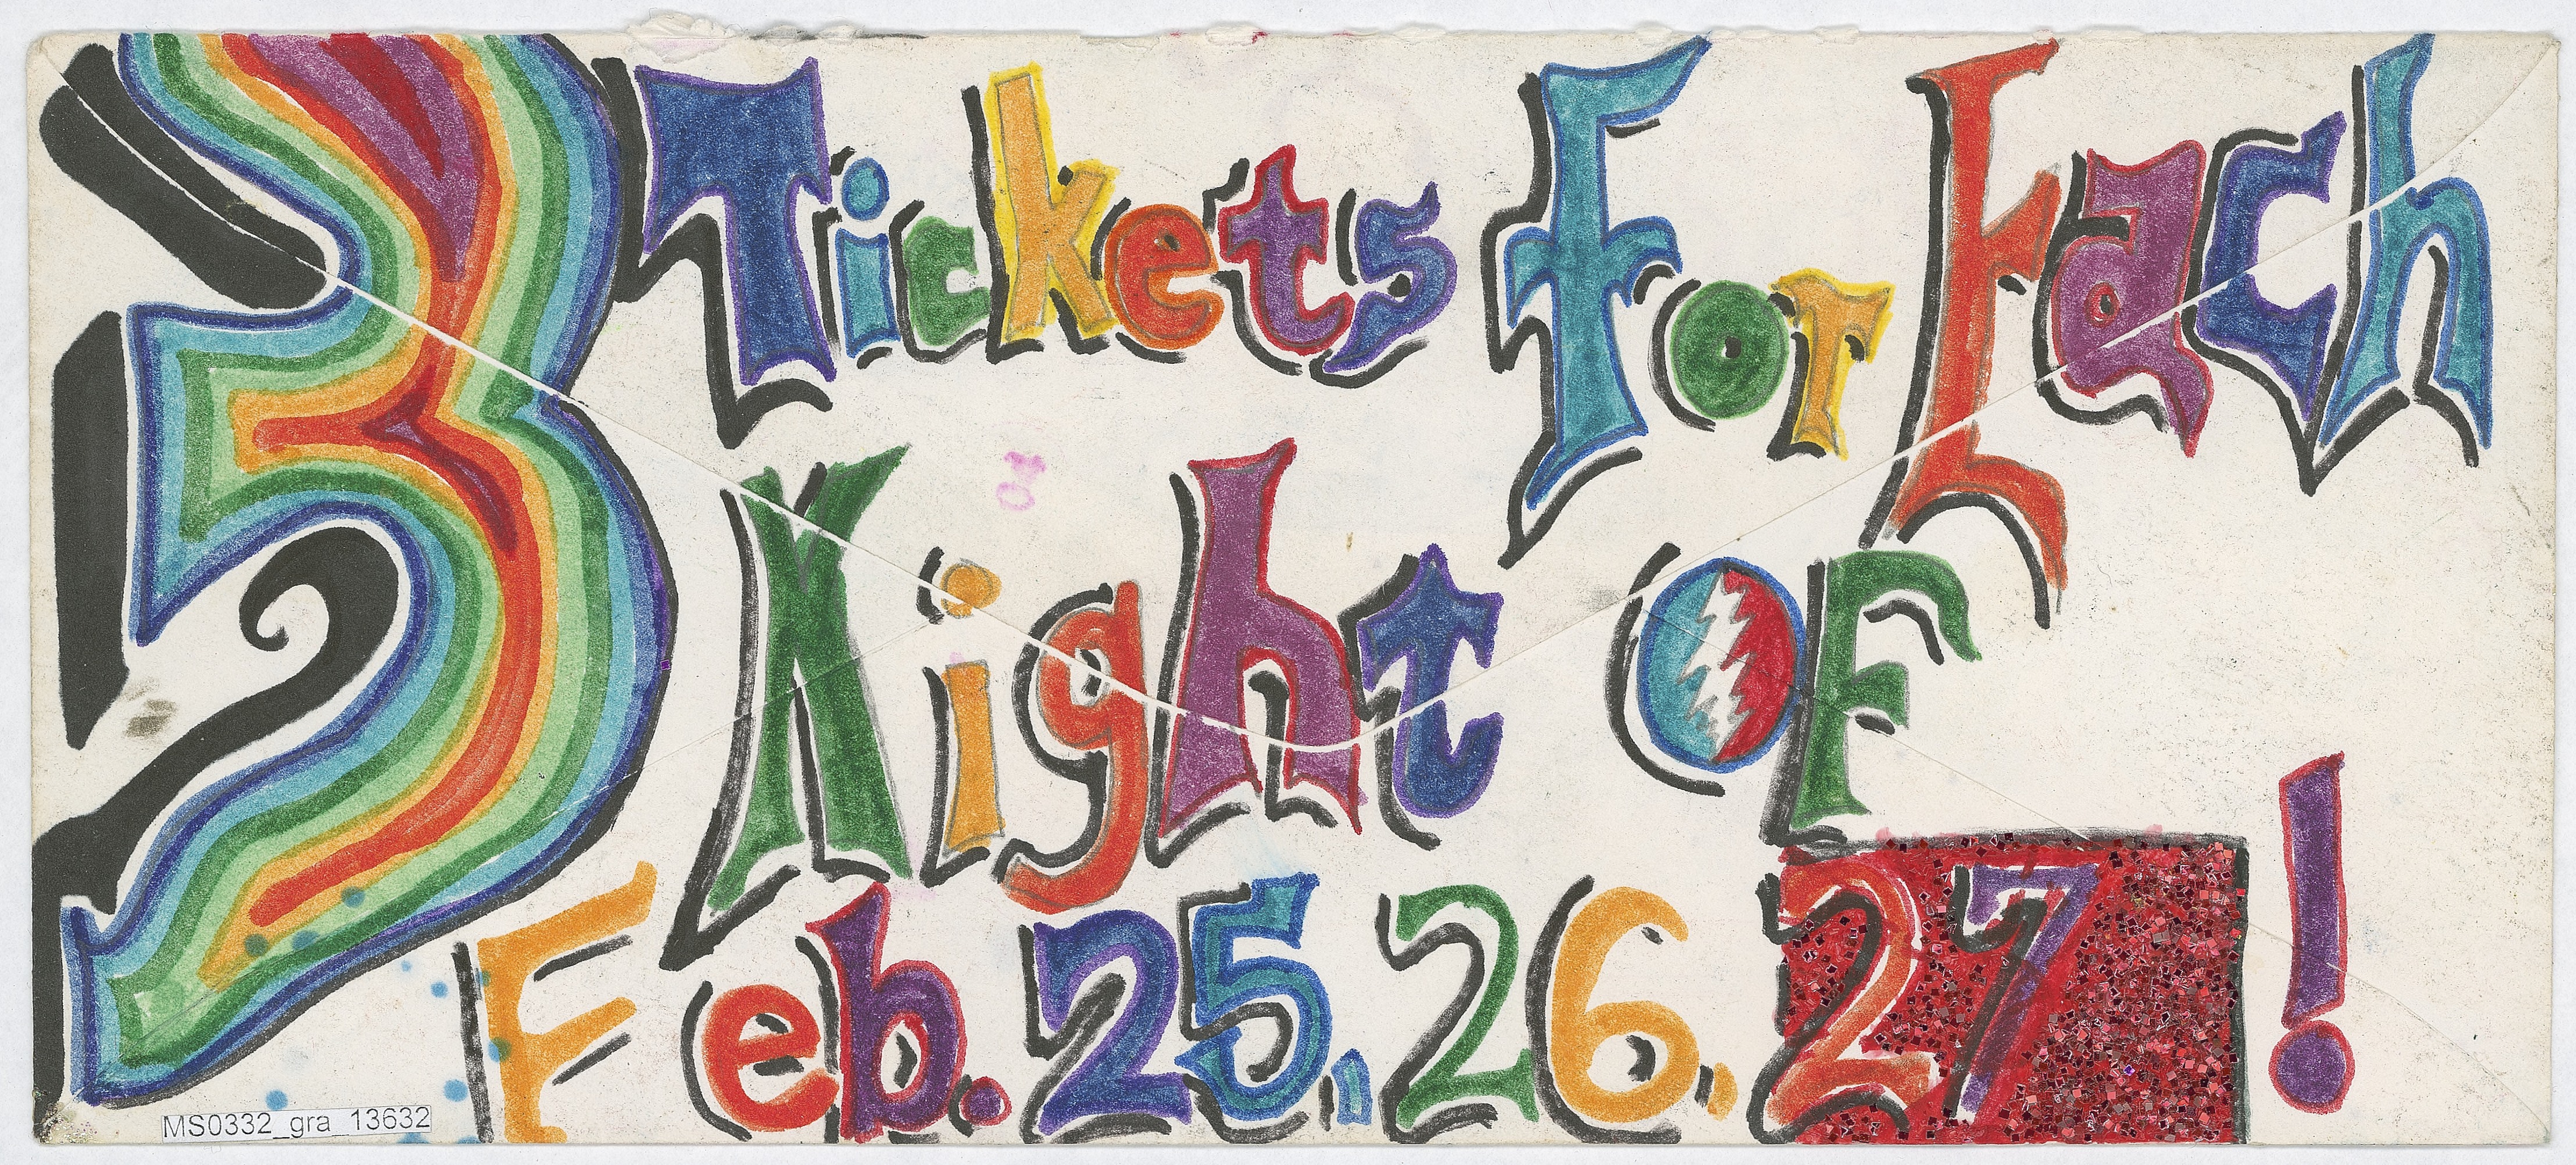 3 Tickets For Each
Night OF
Feb. 25, 26, 27!
MS0332_gra_13632